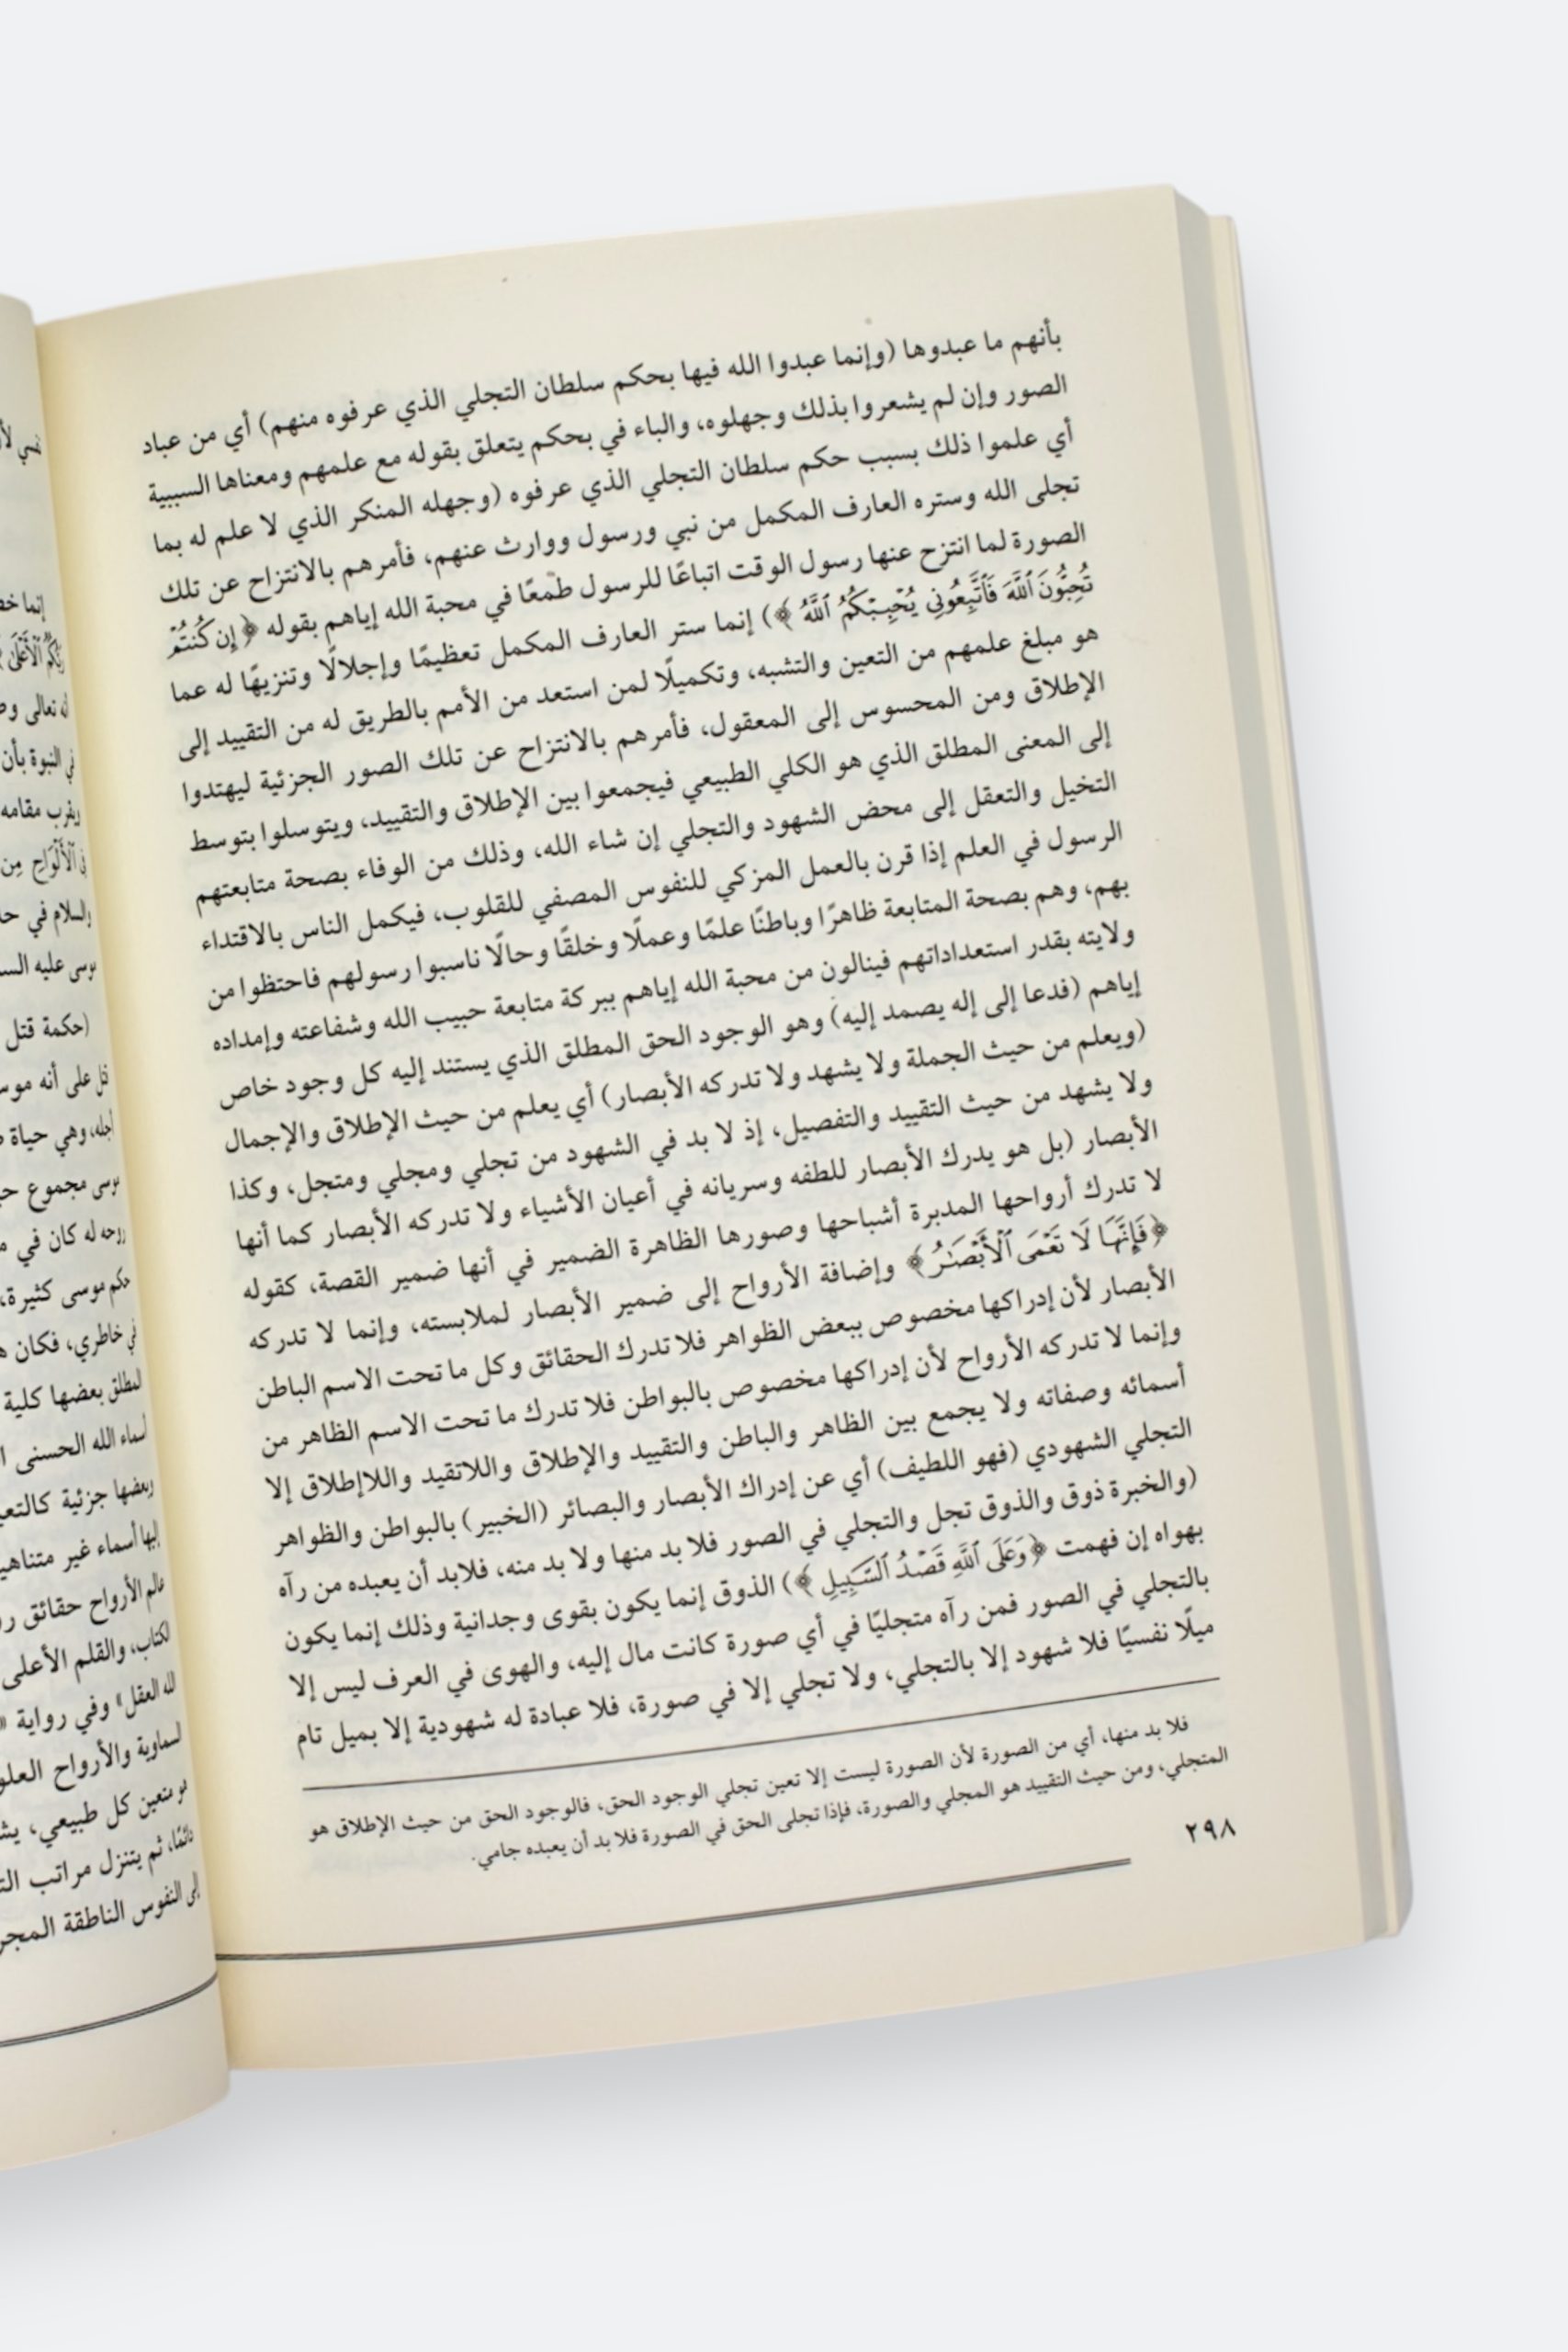 بأنهم ما عبدوها (وإنما عبدوا الله فيها بحكم سلطان التجلي الذي عرفوه منهم) أي من عباد
الصور وإن لم يشعروا بذلك وجهلوه، والباء في بحكم يتعلق بقوله مع علمهم ومعناها السببية
أي علموا ذلك بسبب حكم سلطان التجلي الذي عرفوه (وجهله المنكر الذي لا علم له بما
تجلى الله وستره العارف المكمل من نبي ورسول ووارث عنهم، فأمرهم بالانتزاح عن تلك
الصورة لما انتزح عنها رسول الوقت اتباعًا للرسول طمعًا في محبة الله إياهم بقوله ﴿إِن كُنتُمْ
تُحِبُّونَ ٱللَّهَ فَٱتَّبِعُونِي يُحْبِبْكُمُ ٱللَّهُ﴾) إنما ستر العارف المكمل تعظيمًا وإجلالًا وتنزيهًا له عما
هو مبلغ علمهم من التعين والتشبه، وتكميلًا لمن استعد من الأمم بالطريق له من التقييد إلى
الإطلاق ومن المحسوس إلى المعقول، فأمرهم بالانتزاح عن تلك الصور الجزئية ليهتدوا
إلى المعنى المطلق الذي هو الكلي الطبيعي فيجمعوا بين الإطلاق والتقييد، ويتوسلوا بتوسط
التخيل والتعقل إلى محض الشهود والتجلي إن شاء الله، وذلك من الوفاء بصحة متابعتهم
الرسول في العلم إذا قرن بالعمل المزكي للنفوس المصفي للقلوب، فيكمل الناس بالاقتداء
بهم، وهم بصحة المتابعة ظاهرًا وباطنًا علمًا وعملًا وخلقًا وحالًا ناسبوا رسولهم فاحتظوا من
ولايته بقدر استعداداتهم فينالون من محبة الله إياهم ببركة متابعة حبيب الله وشفاعته وإمداده
إياهم (فدعا إلى إله يصمد إليه) وهو الوجود الحق المطلق الذي يستند إليه كل وجود خاص
(ويعلم من حيث الجملة ولا يشهد ولا تدركه الأبصار) أي يعلم من حيث الإطلاق والإجمال
ولا يشهد من حيث التقييد والتفصيل، إذ لا بد في الشهود من تجلي ومجلي ومتجل، وكذا
الأبصار (بل هو يدرك الأبصار للطفه وسريانه في أعيان الأشياء ولا تدركه الأبصار كما أنها
لا تدرك أرواحها المدبرة أشباحها وصورها الظاهرة الضمير في أنها ضمير القصة، كقوله
﴿فَإِنَّهَا لَا تَعْمَى ٱلْأَبْصَٰرُ﴾ وإضافة الأرواح إلى ضمير الأبصار لملابسته، وإنما لا تدركه
الأبصار لأن إدراكها مخصوص ببعض الظواهر فلا تدرك الحقائق وكل ما تحت الاسم الباطن
وإنما لا تدركه الأرواح لأن إدراكها مخصوص بالبواطن فلا تدرك ما تحت الاسم الظاهر من
أسمائه وصفاته ولا يجمع بين الظاهر والباطن والتقييد والإطلاق واللاتقيد واللاإطلاق إلا
التجلي الشهودي (فهو اللطيف) أي عن إدراك الأبصار والبصائر (الخبير) بالبواطن والظواهر
(والخبرة ذوق والذوق تجل والتجلي في الصور فلا بد منها ولا بد منه، فلابد أن يعبده من رآه
بهواه إن فهمت ﴿وَعَلَى ٱللَّهِ قَصْدُ ٱلسَّبِيلِ﴾) الذوق إنما يكون بقوى وجدانية وذلك إنما يكون
بالتجلي في الصور فمن رآه متجليًا في أي صورة كانت مال إليه، والهوى في العرف ليس إلا
ميلًا نفسيًا فلا شهود إلا بالتجلي، ولا تجلي إلا في صورة، فلا عبادة له شهودية إلا بميل تام
فلا بد منها، أي من الصورة لأن الصورة ليست إلا تعين تجلي الوجود الحق، فالوجود الحق من حيث الإطلاق هو
المتجلي، ومن حيث التقييد هو المجلي والصورة، فإذا تجلى الحق في الصورة فلا بد أن يعبده جامي.
٢٩٨
إنما
تعالى
في النبوة بأن
مقامه
والسلام في
موسى عليه
(حكمة قتل
على أنه
وهي حياة
موسى مجموع
روحه له كان في
حكم موسى كثيرة،
في خاطري، فكان
المطلق بعضها كلية
أسماء الله الحسنى
وبعضها جزئية
إليها أسماء غير
عالم الأرواح حقائق
الكتاب، والقلم الأعلى
الله العقل» وفي رواية «
السماوية والأرواح
هو متعين كل طبيعي،
دائمًا، ثم يتنزل مراتب
إلى النفوس الناطقة